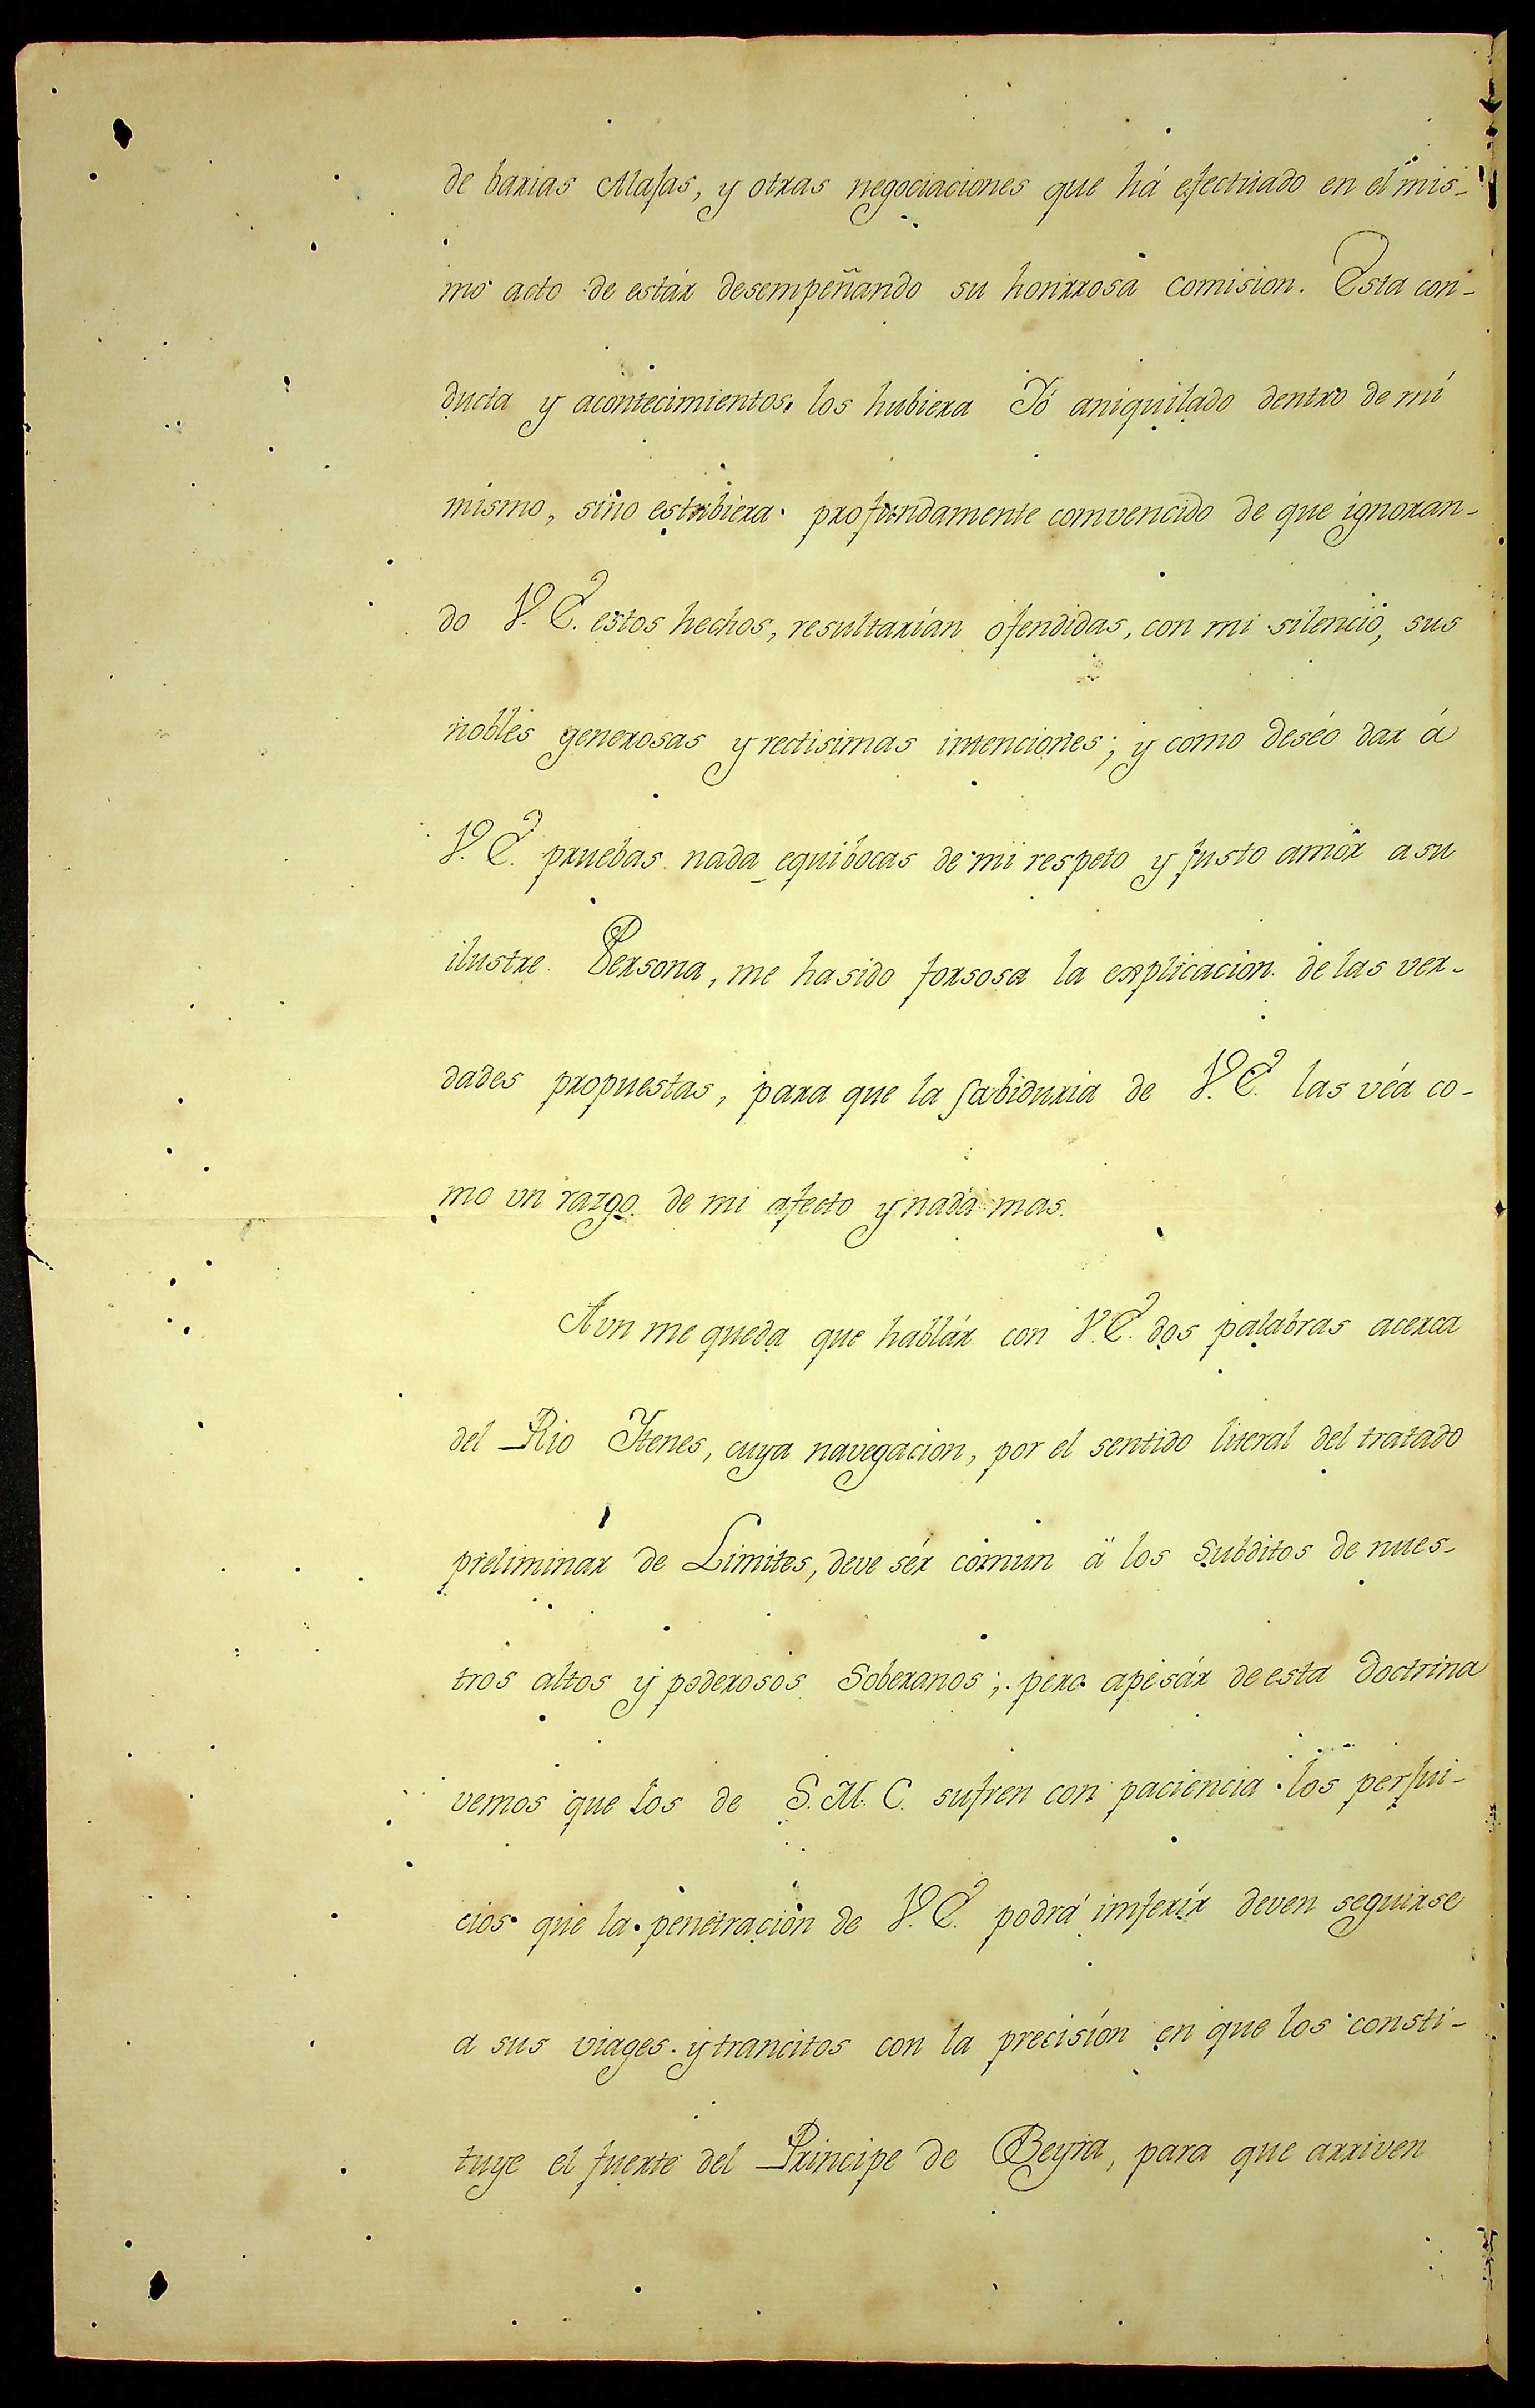 de barias Alajas, y otras negociaciones que há efectuado en el mis-
mo acto de estár desempeñando su honrrosa comision. Esta con-
ducta y acontecimientos los hubiera Yó aniquilado dentro de mí
mismo, sino estubiera profundamente comvencido de que ignoran-
do V. E. estos hechos, resultarían ofendidas, con mi silencio, sus
nobles generosas y rectisimas intenciones; y como deséo dar á
V. E. pruebas nada equibocas de mi respeto y justo amór a su
ilustre Persona, me ha sido forsosa la explicacion de las ver-
dades propuestas, para que la sabiduria de V. E. las véa co-
mo un razgo de mi afecto y nada mas.
Aun me queda que hablár con V. E. dos palabras acerca
del Rio Itenes, cuya navegacion, por el sentido literal del tratado
preliminar de Limites, deve sér comun á los subditos de nues-
tros altos y poderosos Soberanos; pero apesár de esta doctrina
vemos que los de S. M. C. sufren con paciencia los perjui-
cios que la penetracion de V. E. podrá imferír deven seguirse
a sus viages y trancitos con la precisíon en que los consti-
tuye el fuerte del Principe de Beyra, para que arriven